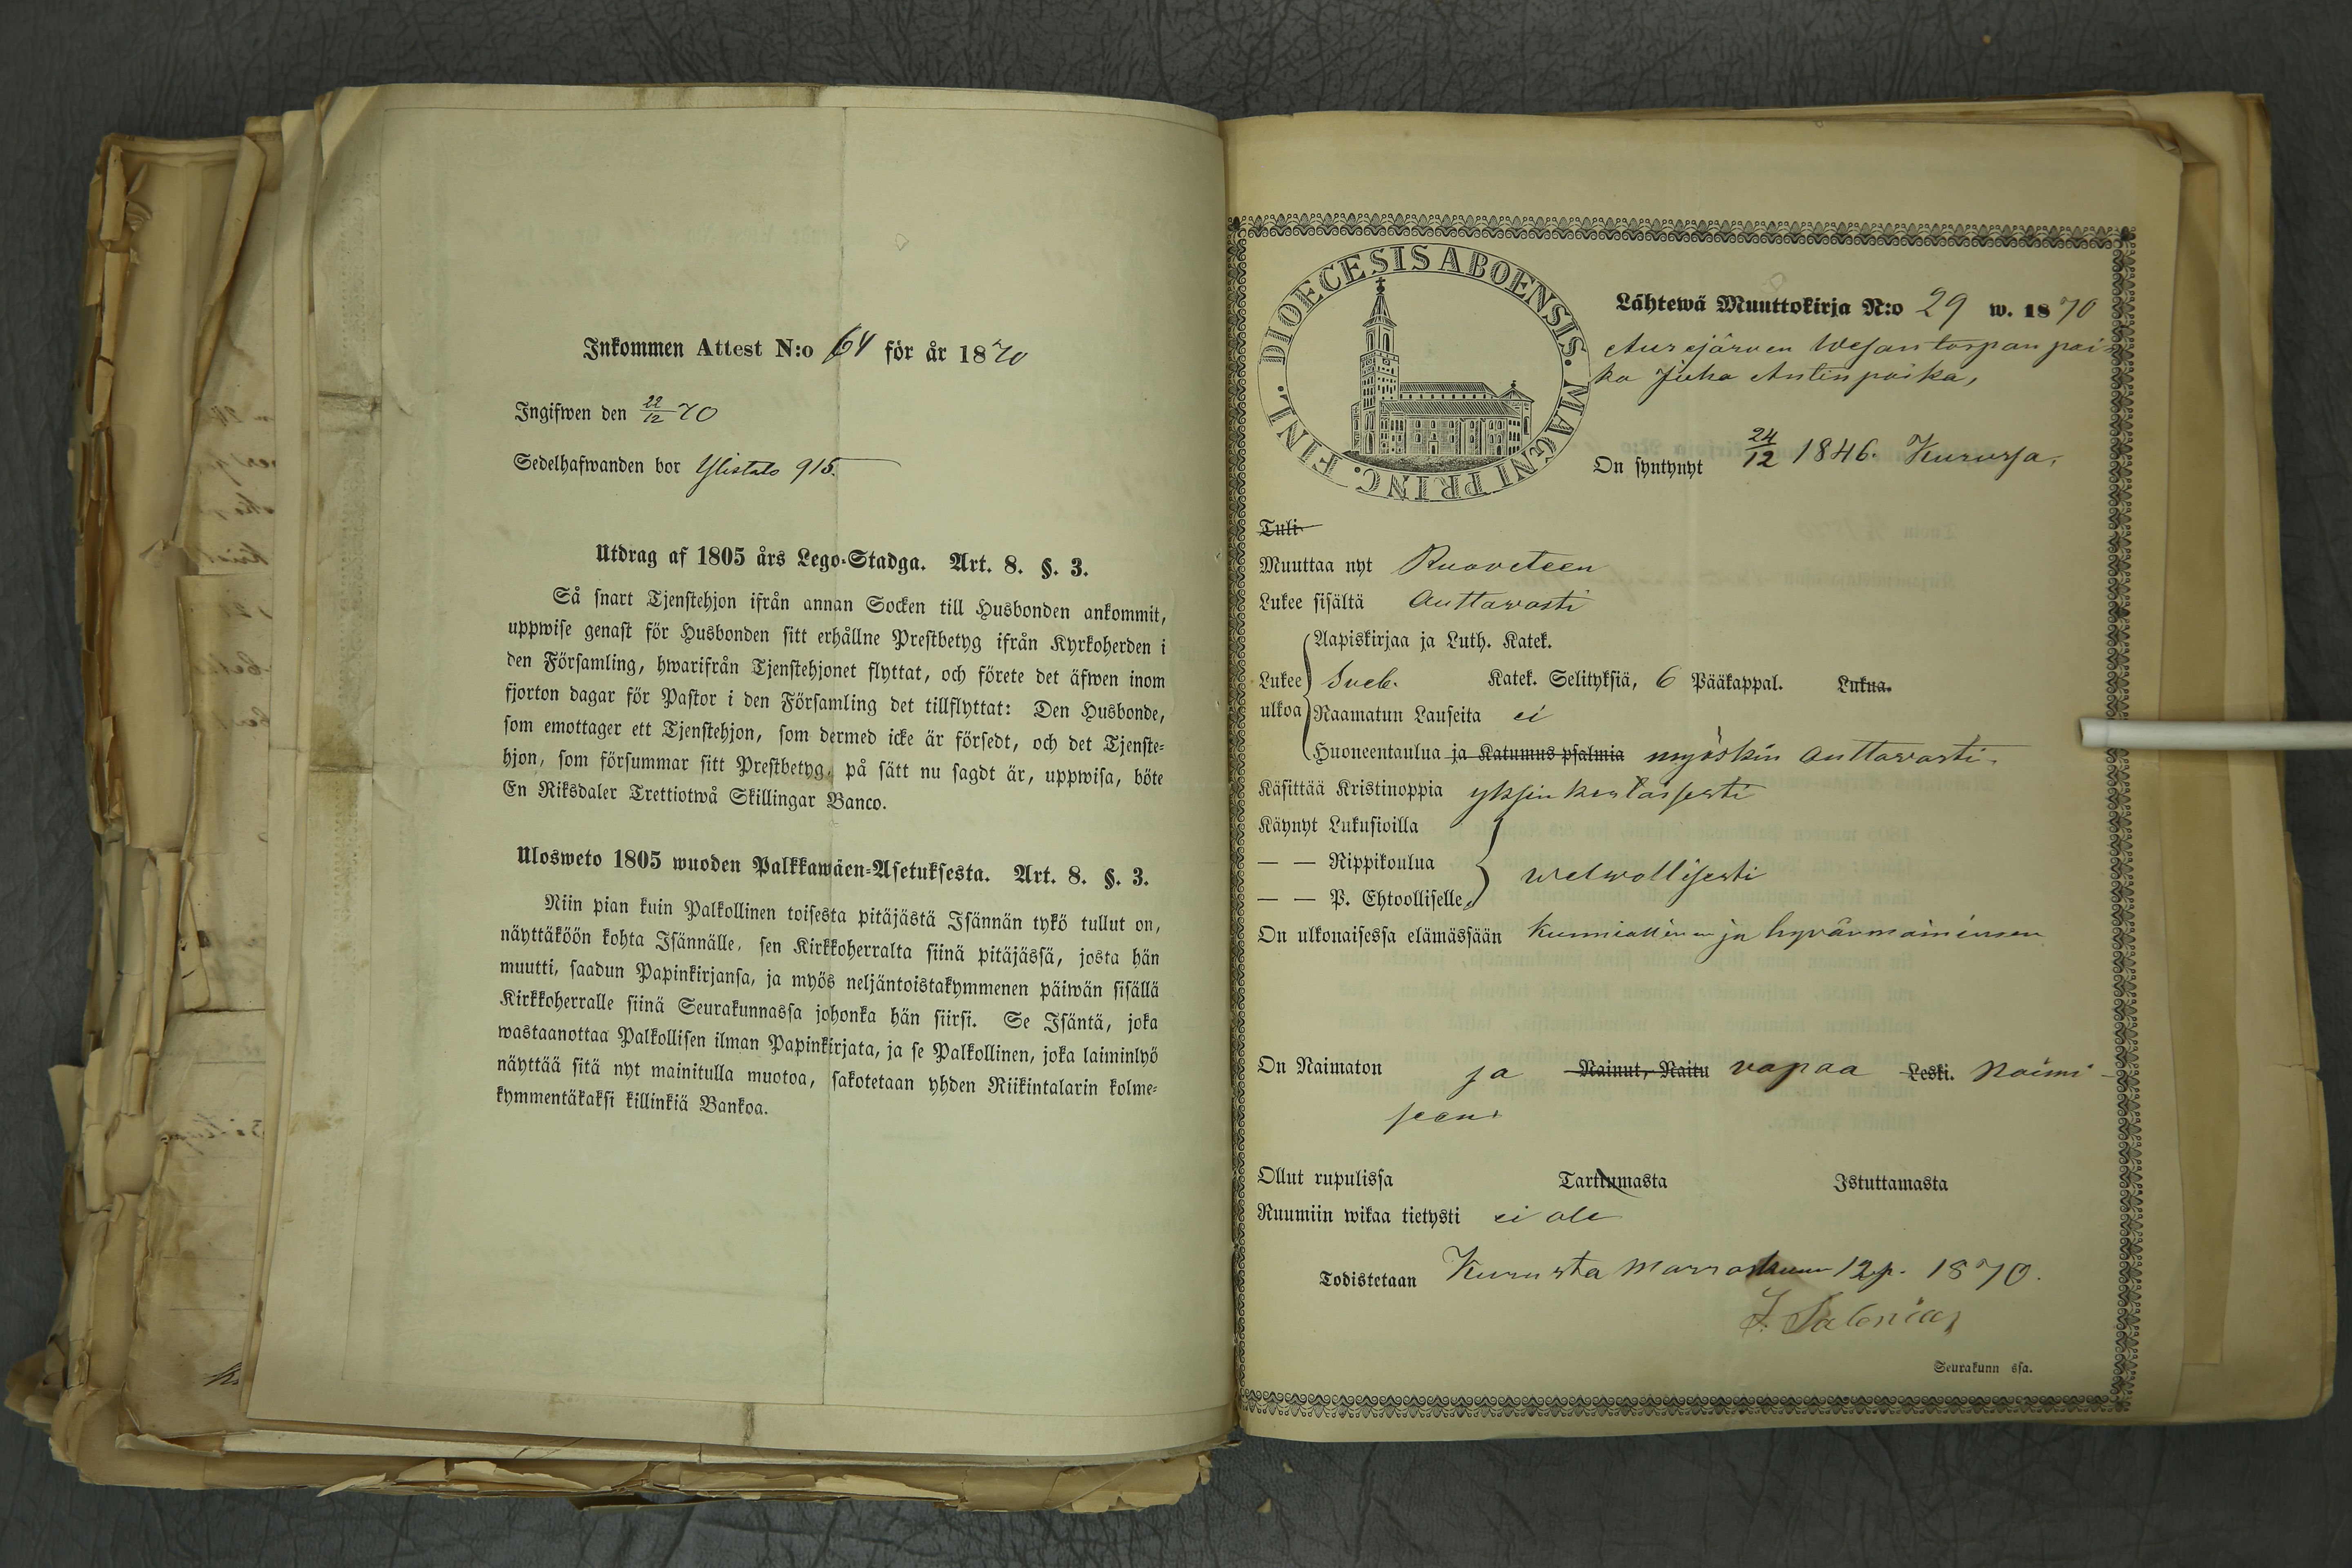 Inkommen Attest N:o 64 för år 1870
Ingifwen den 22/12 70
Sedelhafwanden bor Ylistalo 915.
Utdrag af 1805 års Lego-Stadga. Art. 8. §. 3.
Så snart Tjenstehjon ifrån annan Socken till Husbonden ankommit,
uppwise genast för Husbonden sitt erhållne Prestbetyg ifrån Kyrkoherden i
den Församling, hwarifrån Tjenstehjonet flyttat, och förete det äfwen inom
fjorton dagar för Pastor i den Församling det tillflyttat: Den Husbonde,
som emottager ett Tjenstehjon, som dermed icke är försedt, och det Tjenste-
hjon, som försummar sitt Prestbetyg, på sätt nu sagdt är, uppwisa, böte
En Riksdaler Trettiotwå Skillingar Banco.
Ulosweto 1805 wuoden Palkkawäen-Asetuksesta. Art. 8. §. 3.
Niin pian kuin Palkollinen toisesta pitäjästä Isännän tykö tullut on,
näyttäköön kohta Isännälle, sen Kirkkoherralta siinä pitäjässä, josta hän
muutti, saadun Papinkirjansa, ja myös neljäntoistakymmenen päiwän sisällä
Kirkkoherralle siinä Seurakunnassa johonka hän siirsi. Se Isäntä, joka
wastaanottaa Palkollisen ilman Papinkirjata, ja se Palkollinen, joka laiminlyö
näyttää sitä nyt mainitulla muotoa, sakotetaan yhden Riikintalarin kolme-
kymmentäkaksi killinkiä Bankoa.
DIOECESIS ABOENSIS. MAGNI PRINC. FINL.
Lähtewä Muuttokirja N:o 29 w. 1870
Aurejärven Wesantorpan poi-
ka Juha Antinpoika,
On syntynyt 24/12 1846. Kurussa.
Tuli
Muuttaa nyt Ruoveteen
Lukee sisältä auttavasti
Aapiskirjaa ja Luth. Katek.
Lukee ulkoa Sveb. Katek. Selityksiä, 6 Pääkappal. Lukua.
Raamatun Lauseita ei
Huoneentaulua ja Katumus psalmia myöskin auttavasti.
Käsittää Kristinoppia yksinkertaisesti
Käynyt Lukusioilla
— — Rippikoulua
— — P. Ehtoolliselle, welwollisesti
On ulkonaisessa elämässään kunniallinen ja hyvänmaininen
On Naimaton ja Nainut, Naitu vapaa Leski. naimi-
seen.
Ollut rupulissa Tarttumasta Istuttamasta
Ruumiin wikaa tietysti ei ole
Todistetaan Kurusta Marraskuun 12 p. 1870.
Seurakunn ssa.